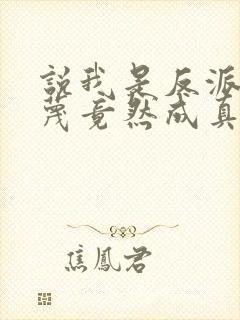 說我是反派
蔑竟然成真
焦鳳君